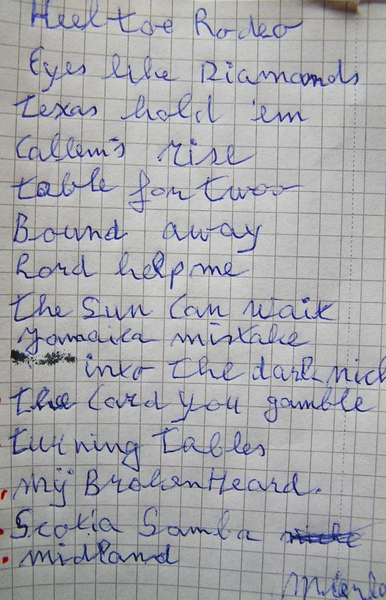 Heel toe Rodeo
Eyes like Diamonds
Texas hold 'em
Callem's rise
table for twoo
Bound away
Lord help me
the Sun Can Wait
Yamaica mistake
into the dark nich
the Card you gamble
turning tables
my BrokenHeard.
Scotia Samba
midland